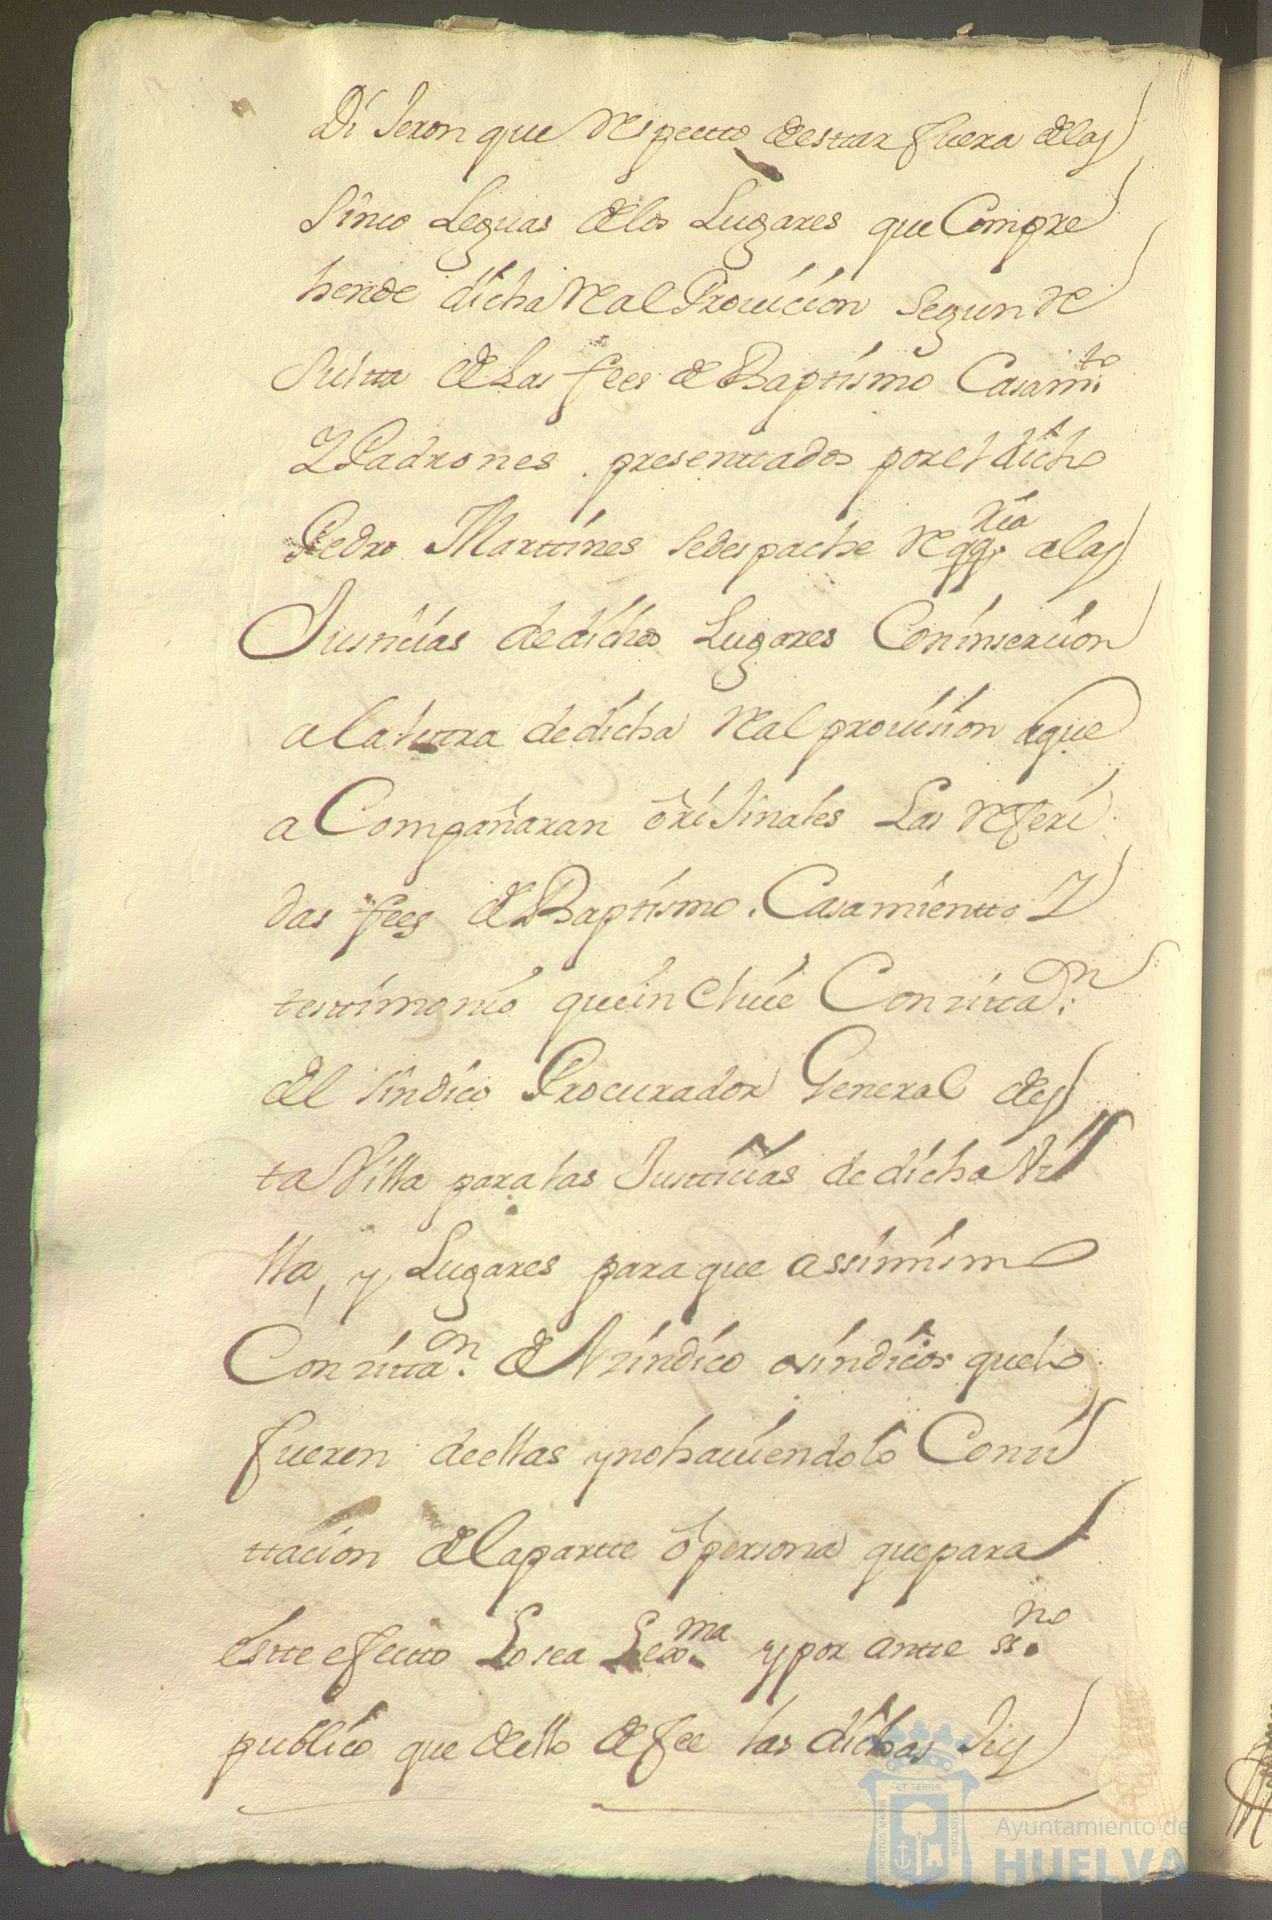 Dijeron que respectto destar fuera delas
sinco Leguas delos Lugares que Compre
hende dicha Real Provicion segun Re
sultta de Las fees de Baptismo Casam.to
Y Padrones presenttados por el dicho
Pedro Marttines se despache Reqq.ria alas
Justicias de dichos Lugares Con insercion
a la letra de dicha Real provision a que
a Compañaran orijinales Las Referi
das fees de Baptismo. Casamientto Y
testtimonio que inClue Con citta.on
del sindico Procurador General des
ta Villa para las Justticias de dicha Vi
lla, y Lugares para que assimismo
Con citta.on del sindico o sindicos que lo
fueren de ellas y no haviendolo Con ci
ttacion de la partte o persona que para
este efectto Lo sea Lexma. y por antte ss.no
publico que de ello de fee las dichas Jus
Ayuntamiento de
HUELVA